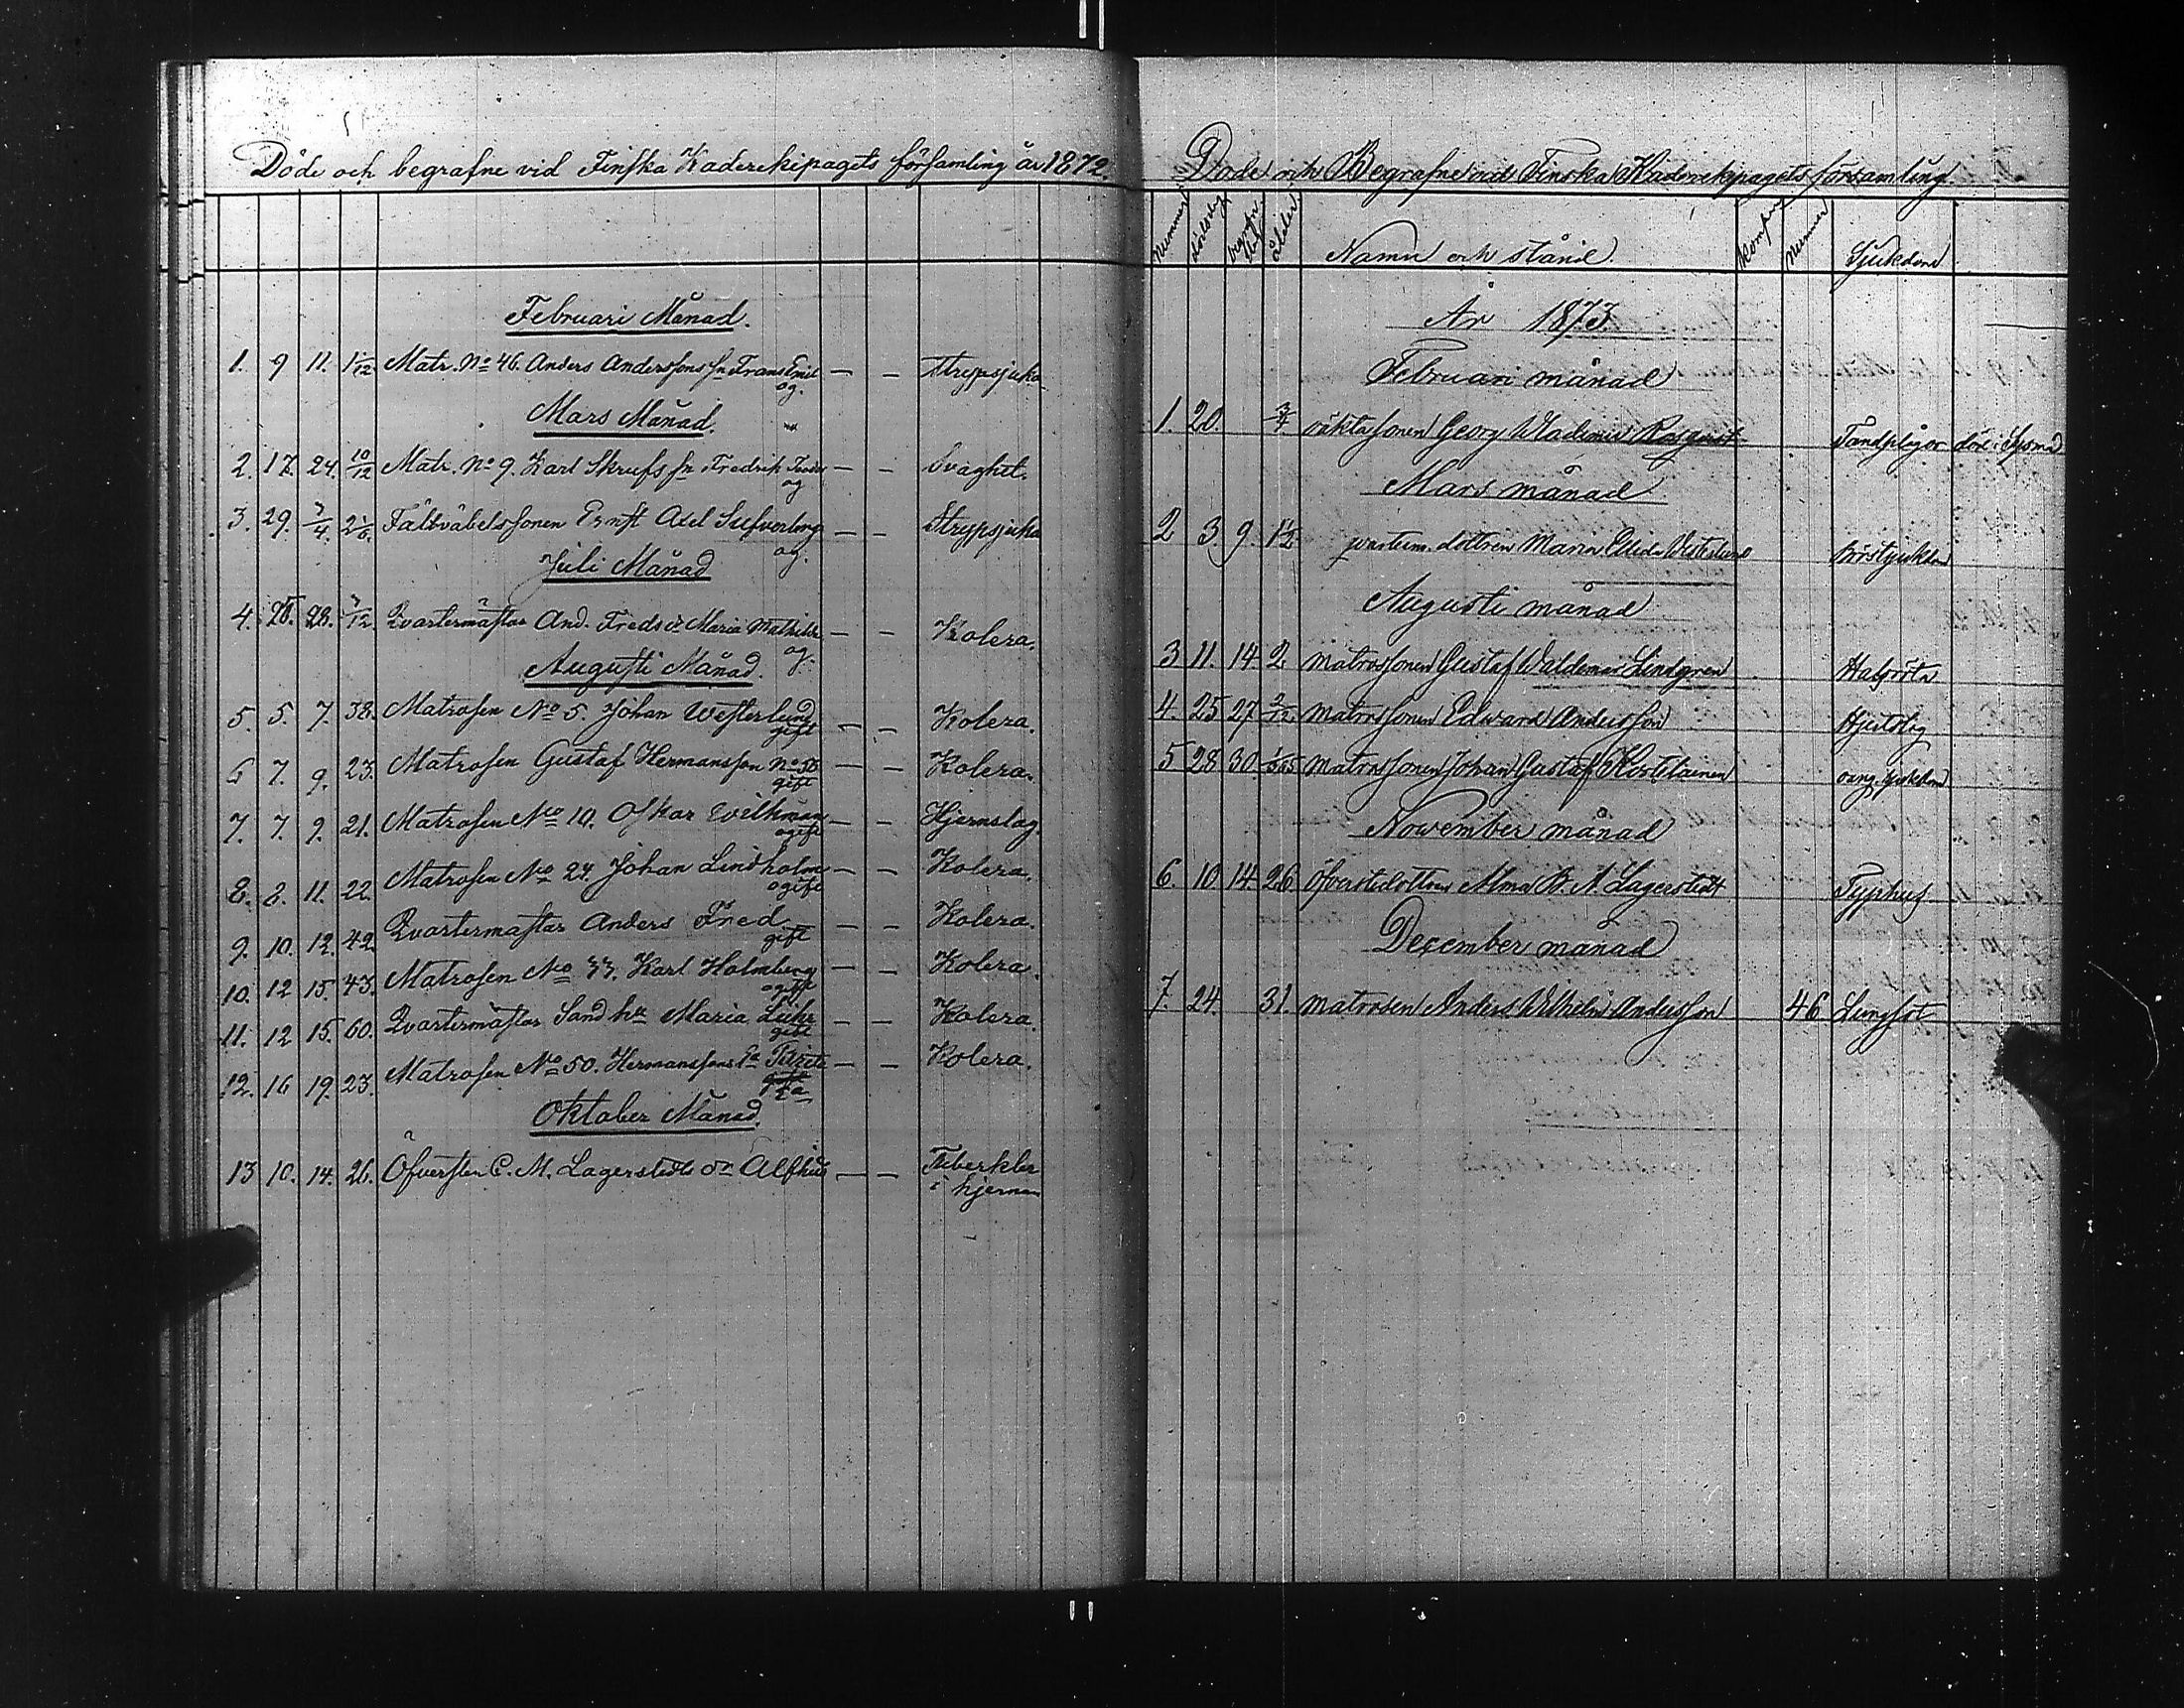 Döde och begrafne vid Finska Kaderekipagets församling år 1872.
Februari Månad.
1. 9 11. 1 1/12 Matr. No 46. Anders Anderssons sn Frans Emil — — Strypsjuka
og.
Mars Månad.
2. 17. 24. 10/12 Matr. No 9. Karl Skrufs sn Fredrik — — Svaghet.
og
3. 29. 3/4. 2 1/6. Fältväbelssonen Ernst Axel — — Strypsjuka
og.
Juli Månad
4. 28. /12. Qvartermästar And. Freds dr Maria Mathilda — — Kolera.
og.
Augusti Månad.
5. 5. 7. 38. Matrosen No 5. Johan Westerlund — — Kolera.
gift
6 7. 9. 23. Matrosen Gustaf Hermansson No 50 — — Kolera.
gift
7. 7. 9. 21. Matrosen No 10. Oskar Wilkman — — Hjernslag.
ogift
8. 8. 11. 22. Matrosen No 24. Johan Lindholm — — Kolera.
ogift
9. 10. 12. 42. Qvartermästar Anders Fred — — Kolera.
gift
10. 12 15. 43. Matrosen No 33. Karl Holmberg — — Kolera.
ogift
11. 12 15. 60. Qvartermästar Sand hu Maria — — Kolera.
gift
12. 16 19. 23. Matrosen No 50. Hermanssons — — Kolera.
Oktober Månad.
13 10. 14. 26. Öfversten C. M. Lagerstedts dr Alfhild — — Tuberkler
i hjernan
Döde och Begrafne vid Finska Kaderekipagets församling
Nummer dödsdag begrafn. dag ålder Namn och stånd. Kompani Nummer Sjukdom
År 1873
Februari månad
1. 20. 3/4 väktarsonen Georg Wladimir Tandplågor död i Sysmä
Mars månad
2 3. 9. 1 1/2 qvarterm. dottren Maria Elida Westerlund bröstsjukdom
Augusti månad
3 11. 14. 2 matrossonen Gustaf Waldemar Lindgren Halsröta
4. 25 27 2/12. matrossonen Edward Andersson Hjertslag
5 28 30 1/365 matrossonen Johan Gustaf Koskelainen sjukdom
November månad
6. 10. 14. 26 öfverstedottren Alma B. A. Lagerstedt Typhus
December månad
7. 24. 31. matrosen Anders Wilhelm Andersson 46 Lungsot